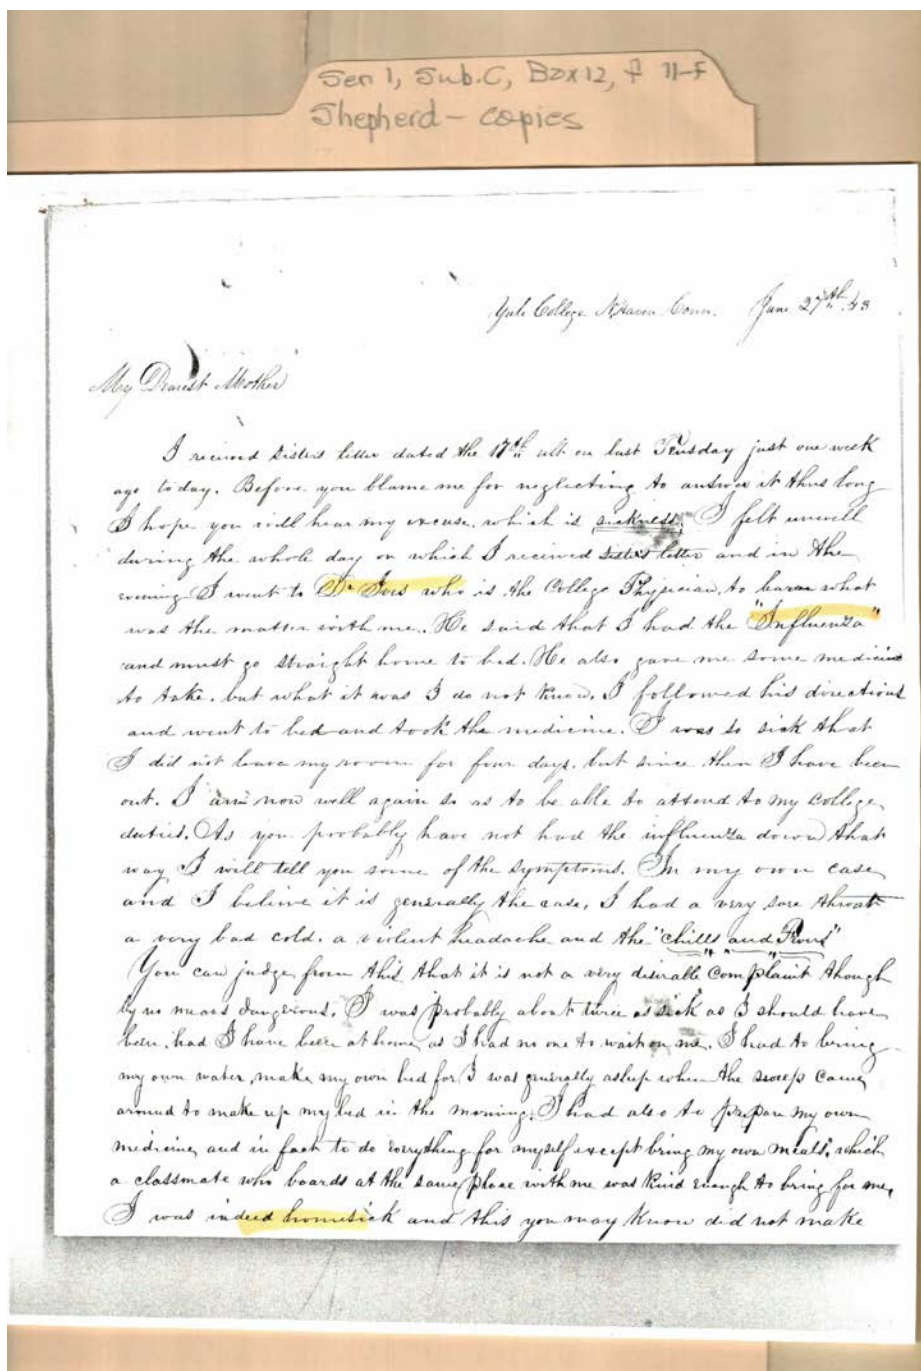 Ser 1, Sub.C, Box 12, f 11-F
Shepherd - copies
Yale College N,Haven Conn. June 27th 43
My Dearest Mother
I received sisters letter dated the 17th ult on last Tuesday just one week
ago today. Before you blame me for neglecting to answer it thus long
I hope you will hear my excuse, which is sickness. I felt unwell
during the whole day on which I received sisters letter and in the
evening I went to Dr Ives who is the College Physician, to learn what
was the matter with me. He said that I had the "Influenza"
and must go straight home to bed. He also gave me some medicine
to take, but what it was I do not know. I followed his directions
and went to bed and took the medicine. I was so sick that
I did not leave my room for four days, but since then I have been
out. I am now well again so as to be able to attend to my college
duties. As you probably have not had the influenza down that
way I will tell you some of the symptoms. In my own case
and I believe it is generally the case, I had a very sore throat
a very bad cold, a violent headache and the "chills and Fevers"
You can judge from this that it is not a very desirable complaint though
by no means dangerous. I was probably about twice as sick as I should have
been, had I have been at home, as I had no one to wait on me. I had to bring
my own water, make my own bed for I was generally asleep when the sweep came
around to make up my bed in the morning. I had also to prepare my own
medicine, and in fact to do everything for myself except bring my own meals, which
a classmate who boards at the same place with me was kind enough to bring for me,
I was indeed homesick and this you may know did not make